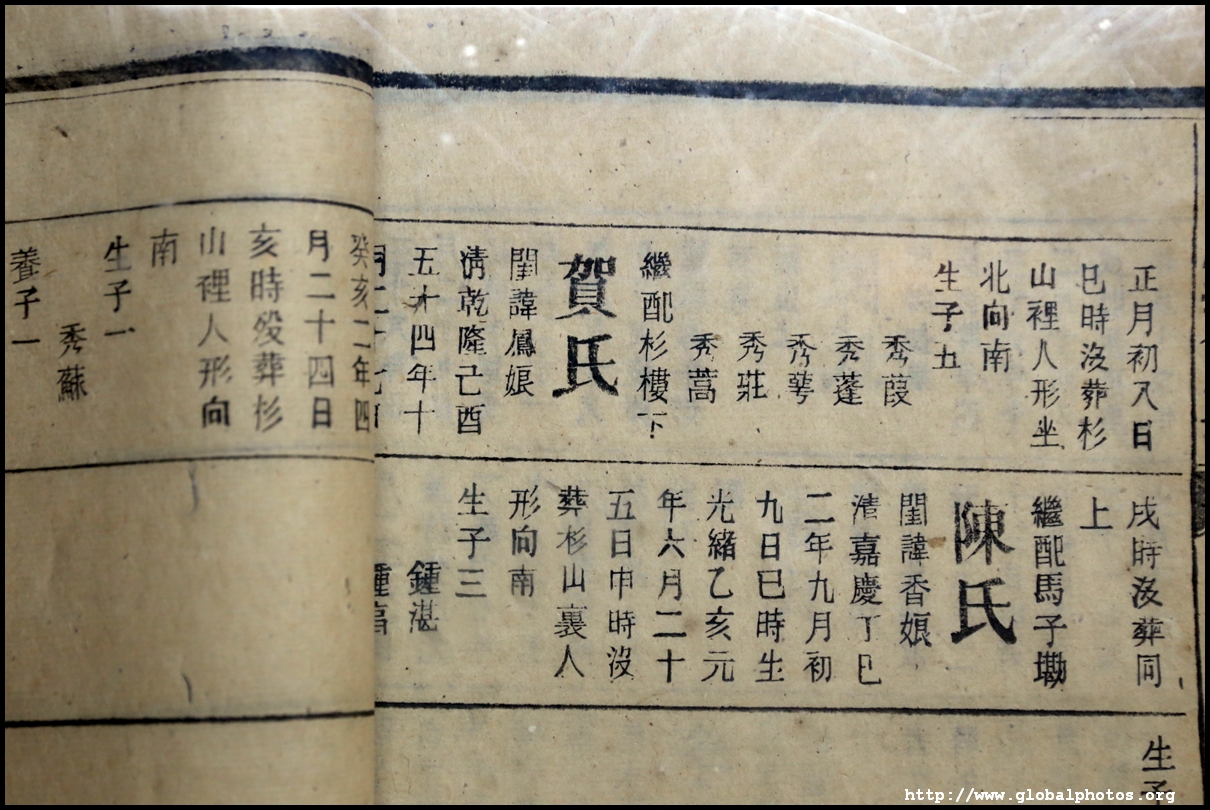 正月初八日
巳時沒葬杉
山裡人形坐
北向南
生子五
秀葭
秀蓬
秀萼
秀莊
秀蒿
繼配杉樓下
賀氏
閨諱鳳娘
清乾隆己酉
五十四年十
月二十七日
癸亥二年四
月二十四日
亥時歿葬杉
山裡人形向
南
生子一
秀蘇
養子一
戌時沒葬同
上
繼配馬子塘
陳氏
閨諱香娘
清嘉慶丁巳
二年九月初
九日巳時生
光緒乙亥元
年六月二十
五日申時沒
葬杉山裏人
形向南
生子三
鍾湛
生子
http://www.globalphotos.org